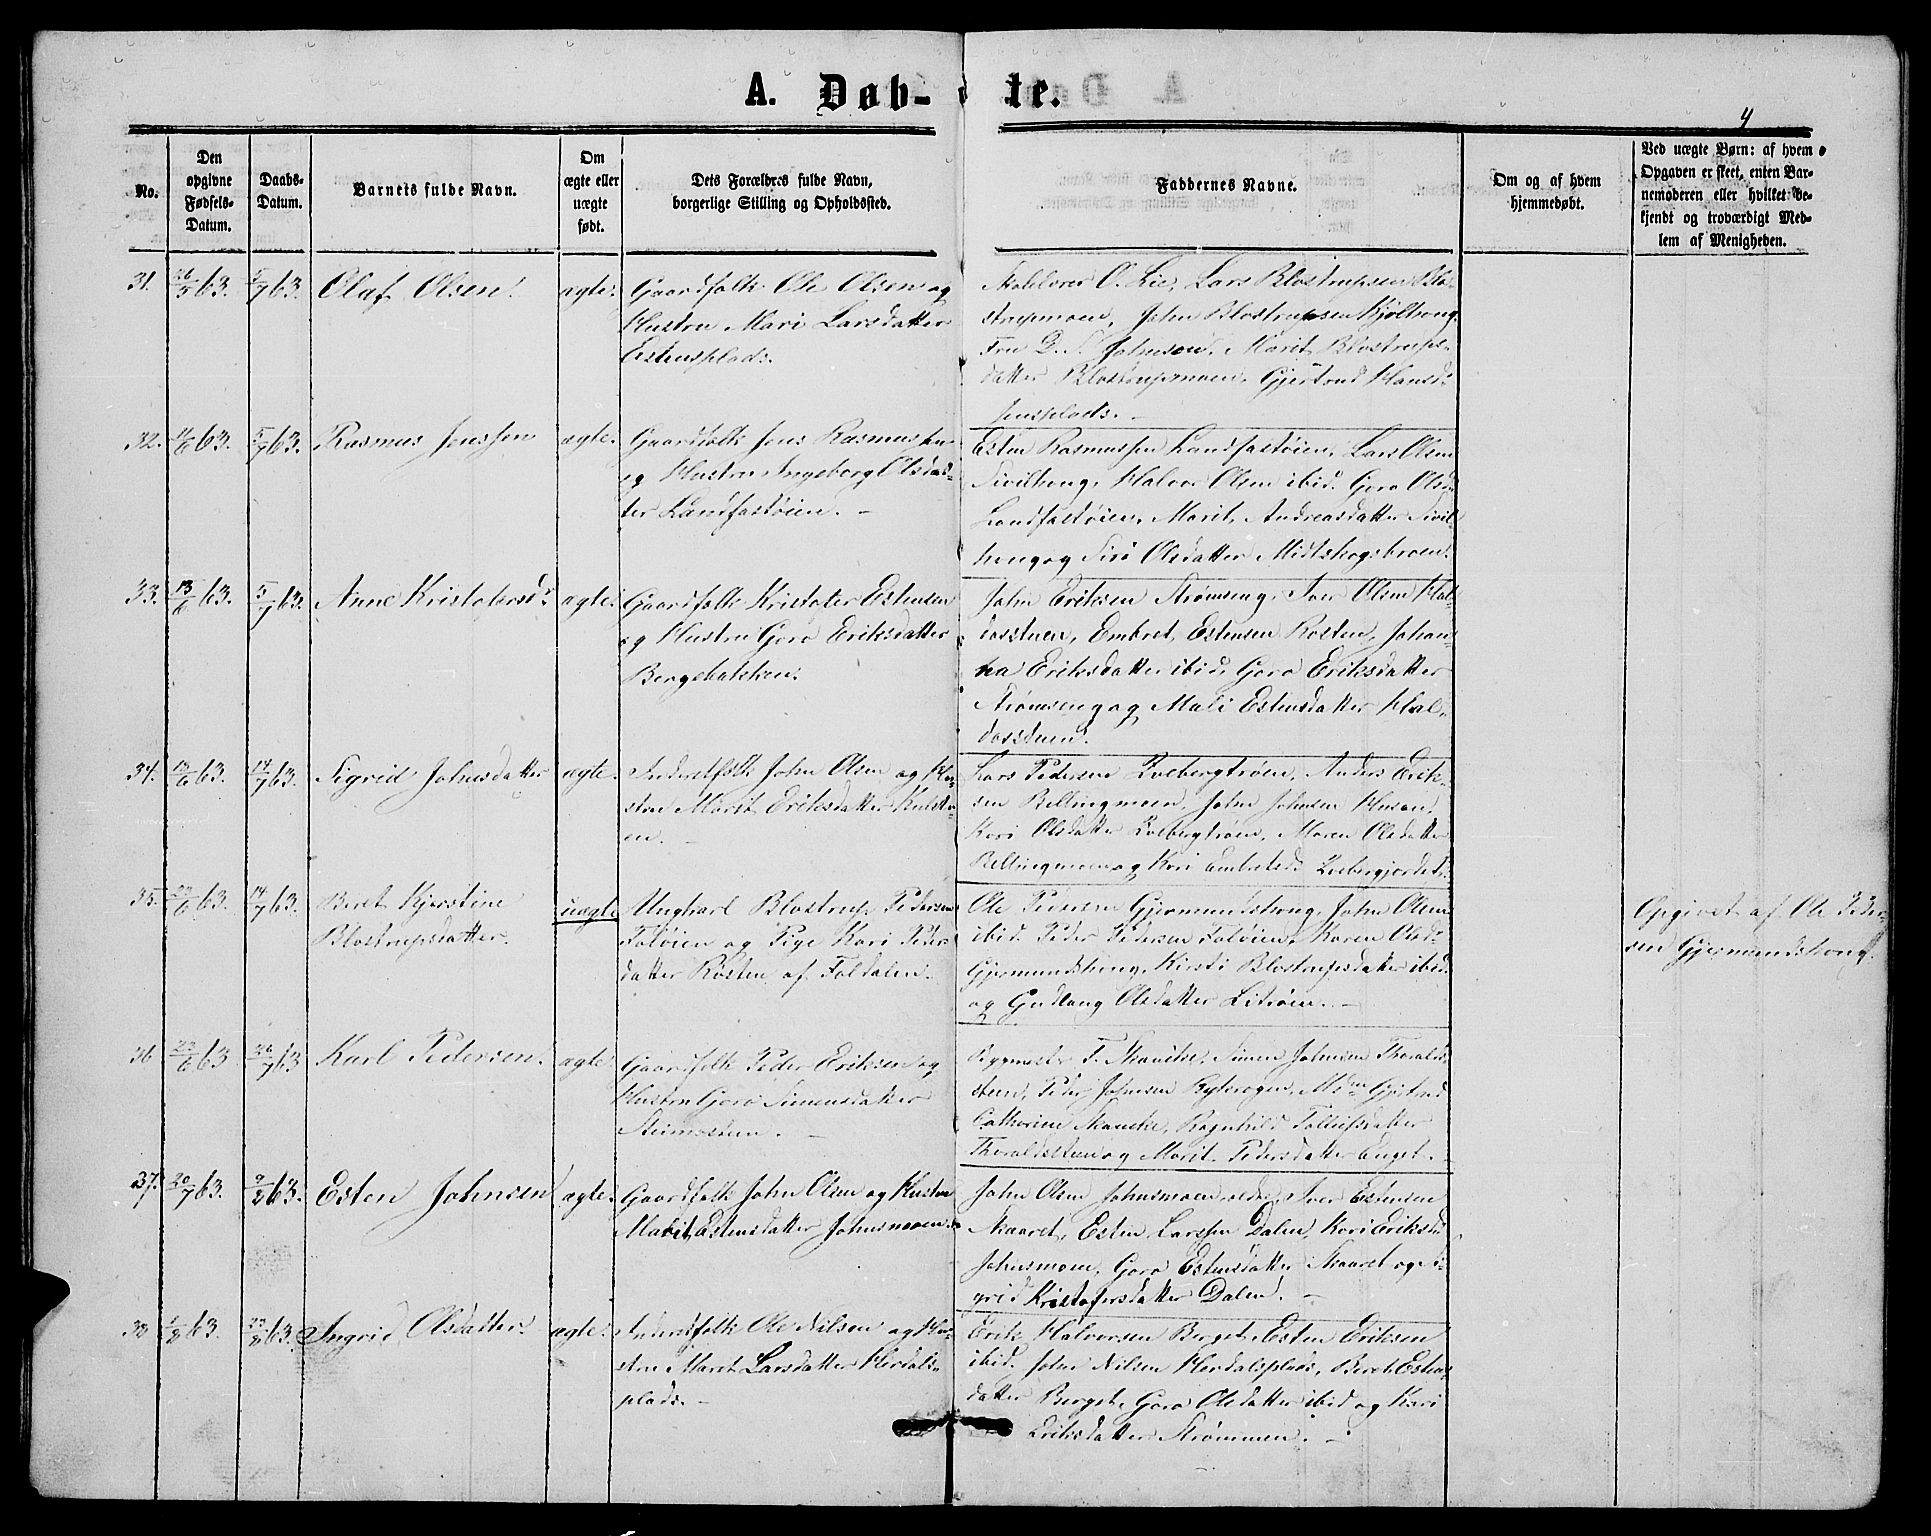 A. Døb- te.
4
No.
Den opgivne Fødsels-Datum.
Daabs-Datum.
Barnets fulde Navn.
Om ægte eller uægte født.
Dets Forældres fulde Navn, borgerlige Stilling og Opholdssted.
Faddernes Navne.
Om og af hvem hjemmedøbt.
Ved uægte Børn: af hvem Opgaven er skeet, enten Barnemoderen eller hvilket bekjendt og troværdigt Medlem af Menigheden.
31. 26/5 63. 5/7 63. Olaf Olsen. ægte.
Gaardfolk Ole Olsen og
Hustru Mari Larsdatter
Estensplads.
O. Lie, Lars Blostrupsen Blo-
strupmoen, John Blostrupsen Kjølhong.
Fru D. S. Johnsen, Marit Blostrups-
datter Blostrupmoen, Gjertrud Hansd.
Jensplads. -
32. 63. 5/7 63. Rasmus Jenssen ægte.
Gaardfolk Jens Rasmussen
og Hustru Ingeborg Olsdat-
ter Landfastøien. -
Esten Rasmussen Landfastøien, Lars Olsen
Sivilhong, Halvor Olsen ibid. Goro Olsd.
Landfastøien, Marit Andreasdatter Sivil-
hong og Siri Olsdatter Midtskogsbroen.
33. 13/6 63. 5/7 63. Anne Kristofersdr ægte.
Gaardfolk Kristofer Estensen
og Hustru Goro Eriksdatter
Bergebakken.
John Eriksen Strømseng, Iver Olsen Hal-
dosstuen, Embret Estensen Rosten, Johan-
na Eriksdatter ibid, Goro Eriksdatter
Strømseng og Mali Estensdatter Hal-
dosstuen.
34. 13/6 63. 14/7 63. Sigrid Johnsdatter ægte.
Inderstfolk John Olsen og Hu-
stru Marit Eriksdatter
en. -
Lars Pedersen Kvebergtrøen, Anders Erik-
sen Bellingmoen, John Johnsen
Kari Olsdatter Kvebergtrøen, Maren Olsdatter
Bellingmoen og Kari Embretsd. Kvebergjordet.
35. 23/6 63. 14/7 63. Beret Kjerstine
Blostrupsdatter. uægte
Ungkarl Blostrup Pedersen
Foløien og Pige Kari Peders-
datter Rosten af Foldalen.
Ole Pedersen Gjermundshong, John Olsen
ibid. Peder Pedersen Foløien, Karen Olsdr
Gjermundshong, Kirsti Blostrupsdatter ibid.
og Gudlaug Olsdatter Litrøen. -
Opgivet af Ole Peder-
sen Gjermundshong.
36 23/6 63 26/7 63 Karl Pedersen. ægte
Gaardfolk Peder Eriksen og
Hustru Goro Simensdatter
Steimostuen. -
Bygmester F. Skancke, Simen Johnsen Thorald-
stuen, Peder Johnsen Rytrogen, Mdm Gjertrud
Cathrine Skancke, Ragnhild Tollefsdatter
Thoraldsstuen og Marit Pedersdatter Enget. -
37. 20/7 63. 9/8 63. Esten Johnsen ægte.
Gaardfolk John Olsen og Hustru
Marit Estensdatter Johnsmoen.
John Olsen Johnsmoen ældre, Iver Estensen
Skaaret, Esten Larssen Dalen, Kari Eriksdr
Johnsmoen, Goro Estensdatter Skaaret og Si-
grid Kristofersdatter Dalen. -
38 1/8 63. 23/8 63. Ingrid Olsdatter. ægte.
Inderstfolk Ole Nilsen og Hu-
stru Marit Larsdatter Herdals-
plads. -
Erik Halvorsen Berget, Esten Eriksen
ibid. John Nilsen Herdalsplads, Beret Estens-
datter Berget, Goro Olsdatter ibid og Kari
Eriksdatter Strømmen. -